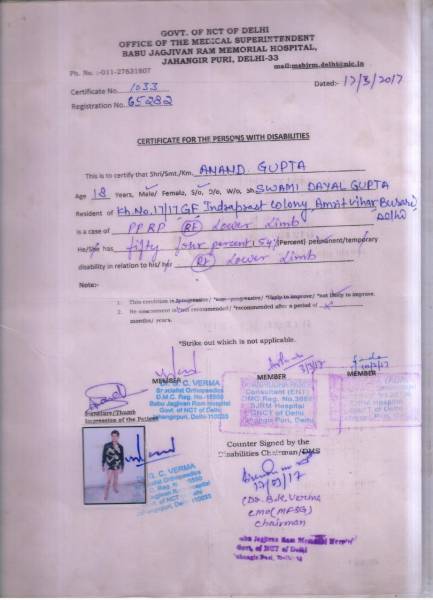 GOVT. OF NCT OF DELHI
OFFICE OF THE MEDICAL SUPERINTENDENT
BABU JAGJIVAN RAM MEMORIAL HOSPITAL,
JAHANGIR PURI, DELHI-33
Ph. No. :-011-27631807
mail:msbjrm.delhi@nic.in
Certificate No. 1033
Dated:- 17/3/2017
Registration No. 65282
CERTIFICATE FOR THE PERSONS WITH DISABILITIES
This is to certify that Shri/Smt./Km. ANAND GUPTA
Age 18 Years, Male/ Female, S/o, D/o, W/o, Sh SWAMI DAYAL GUPTA
Resident of Kh.No.17/17 GF Indraprast Colony, Amrit vihar Burari
Delhi
is a case of PPRP (Rt) Lower Limb
He/She has fifty four percent (54) (Percent) permanent/temporary
disability in relation to his/ her (Rt) Lower Limb
Note:-
1. This condition is progressive/ *non-progressive/ *likely to improve/ *not likely to improve.
2. Re-assessment is not recommended/ *recommended after a period of
months/ years.
*Strike out which is not applicable.
MEMBER
MEMBER
MEMBER
C. VERMA
Specialist Orthopaedics
D.M.C. Reg. No.-16550
Babu Jagjivan Ram Hospital
Govt. of NCT of Delhi
Jahangirpuri, Delhi-110033
Consultant (ENT)
BJRM Hospital
GNCT of Delhi
Jahangir Puri, Delhi
Signature/Thumb
Impression of the Patient
Counter Signed by the
Disabilities Chairman/DMS
17/03/17
Chairman
Babu Jagjivan Ram Memorial Hospital
Govt. of NCT of Delhi